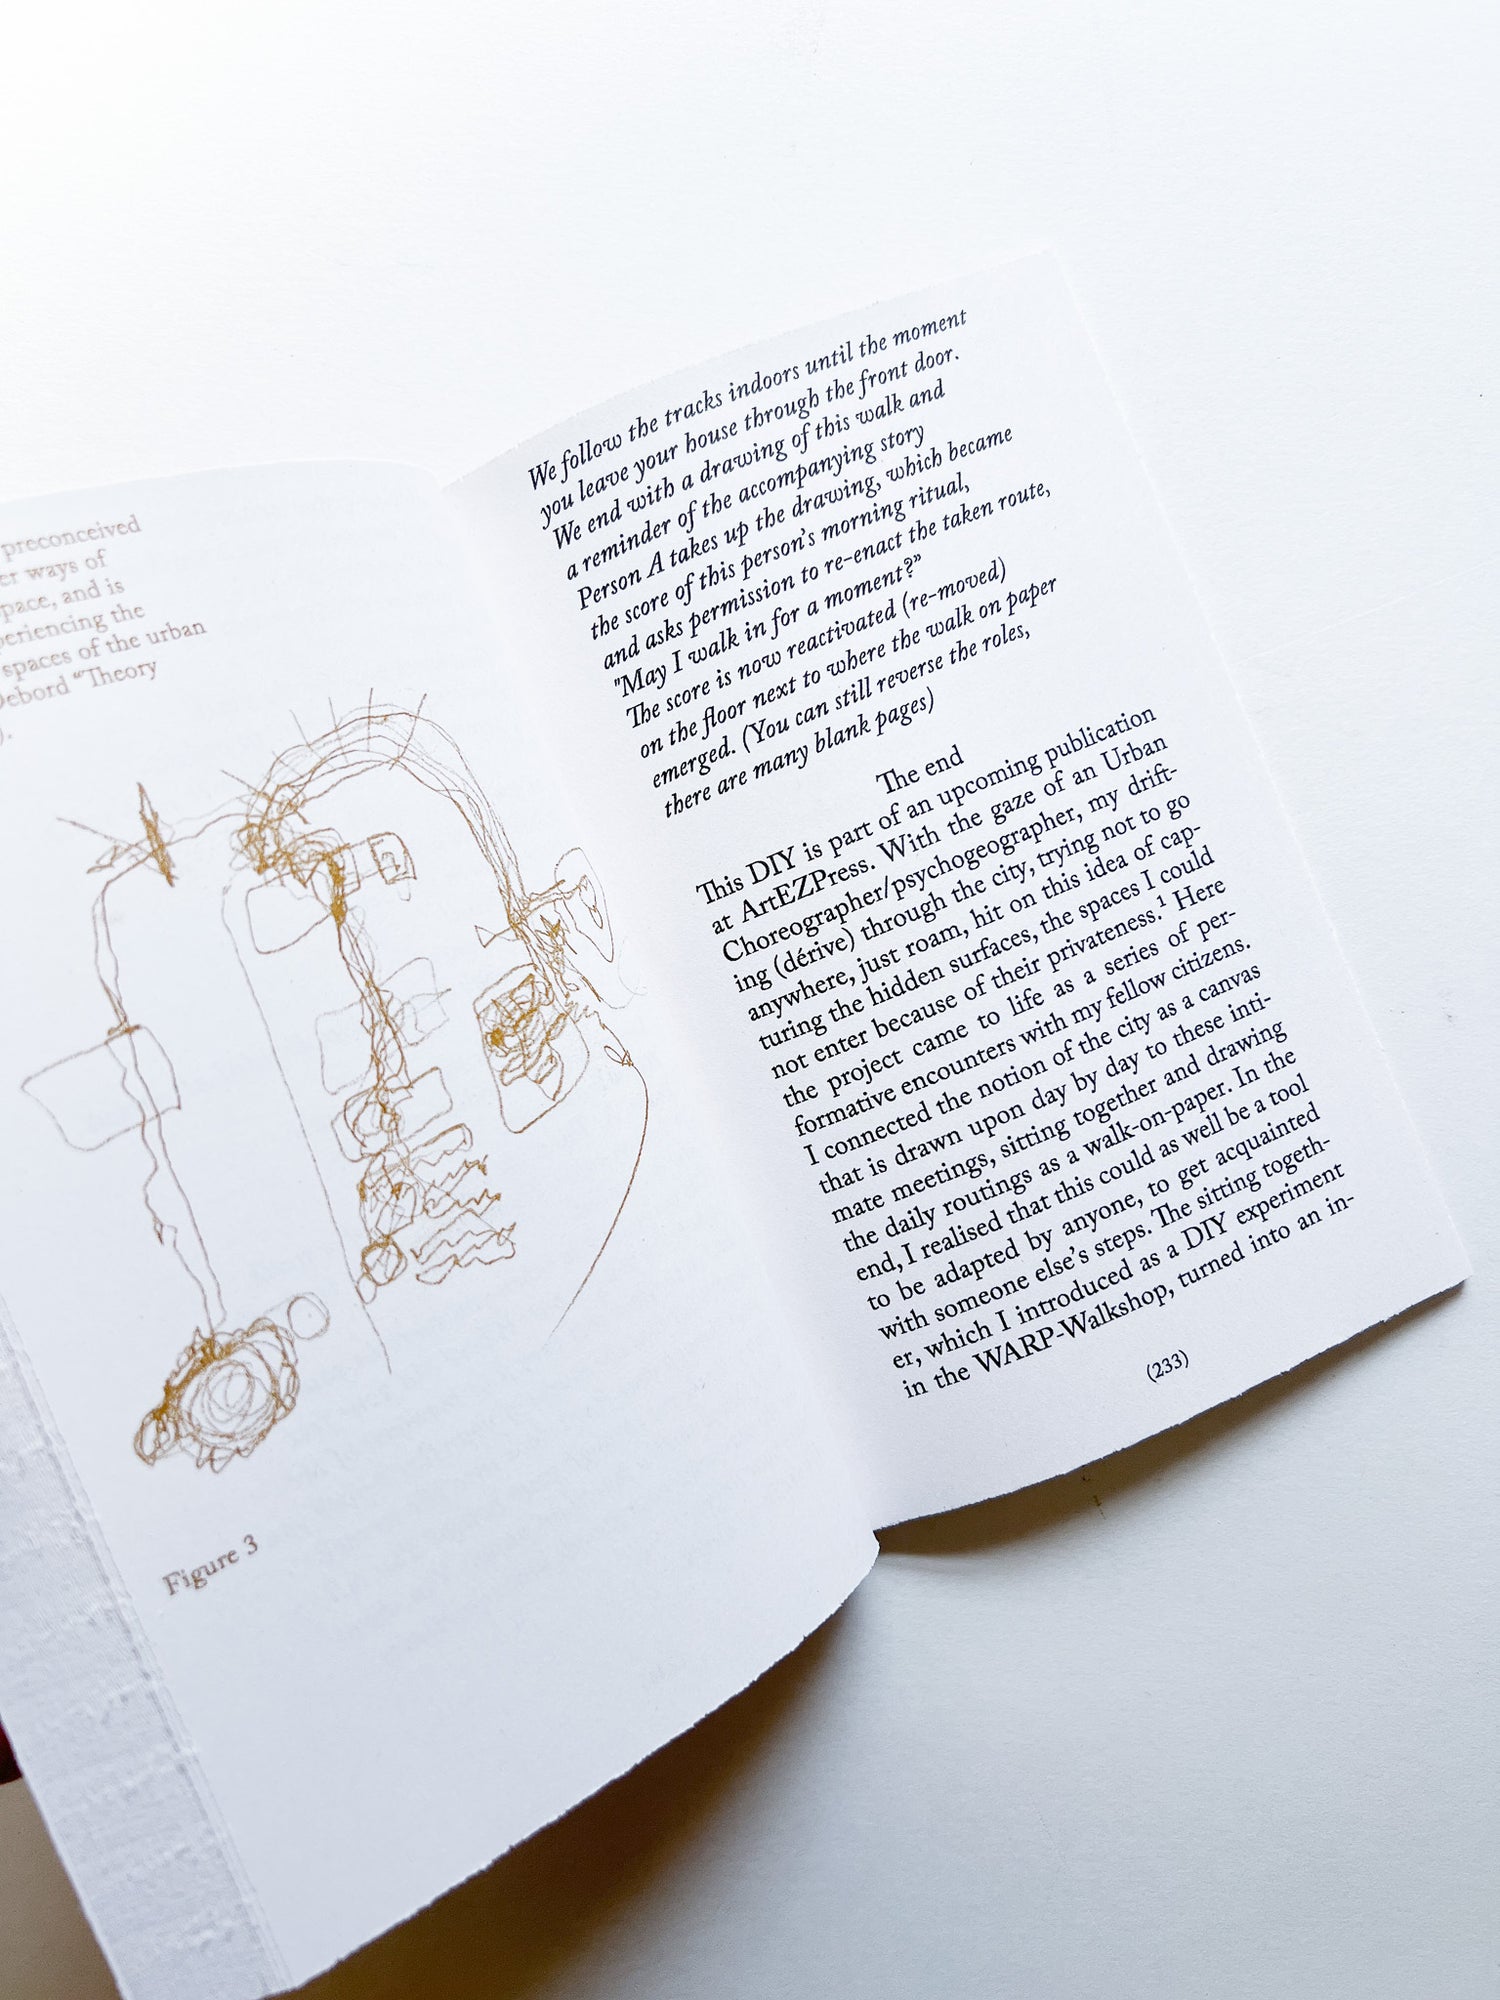 preconceived
er ways of
pace, and is
periencing the
spaces of the urban
Debord “Theory
).
Figure 3
We follow the tracks indoors until the moment
you leave your house through the front door.
We end with a drawing of this walk and
a reminder of the accompanying story
Person A takes up the drawing, which became
the score of this person's morning ritual,
and asks permission to re-enact the taken route,
"May I walk in for a moment?”
The score is now reactivated (re-moved)
on the floor next to where the walk on paper
emerged. (You can still reverse the roles,
there are many blank pages)
The end
This DIY is part of an upcoming publication
at ArtEZPress. With the gaze of an Urban
Choreographer/psychogeographer, my drift-
ing (dérive) through the city, trying not to go
anywhere, just roam, hit on this idea of cap-
turing the hidden surfaces, the spaces I could
not enter because of their privateness.¹ Here
the project came to life as a series of per-
formative encounters with my fellow citizens.
I connected the notion of the city as a canvas
that is drawn upon day by day to these inti-
mate meetings, sitting together and drawing
the daily routings as a walk-on-paper. In the
end, I realised that this could as well be a tool
to be adapted by anyone, to get acquainted
with someone else’s steps. The sitting togeth-
er, which I introduced as a DIY experiment
in the WARP-Walkshop, turned into an in-
(233)